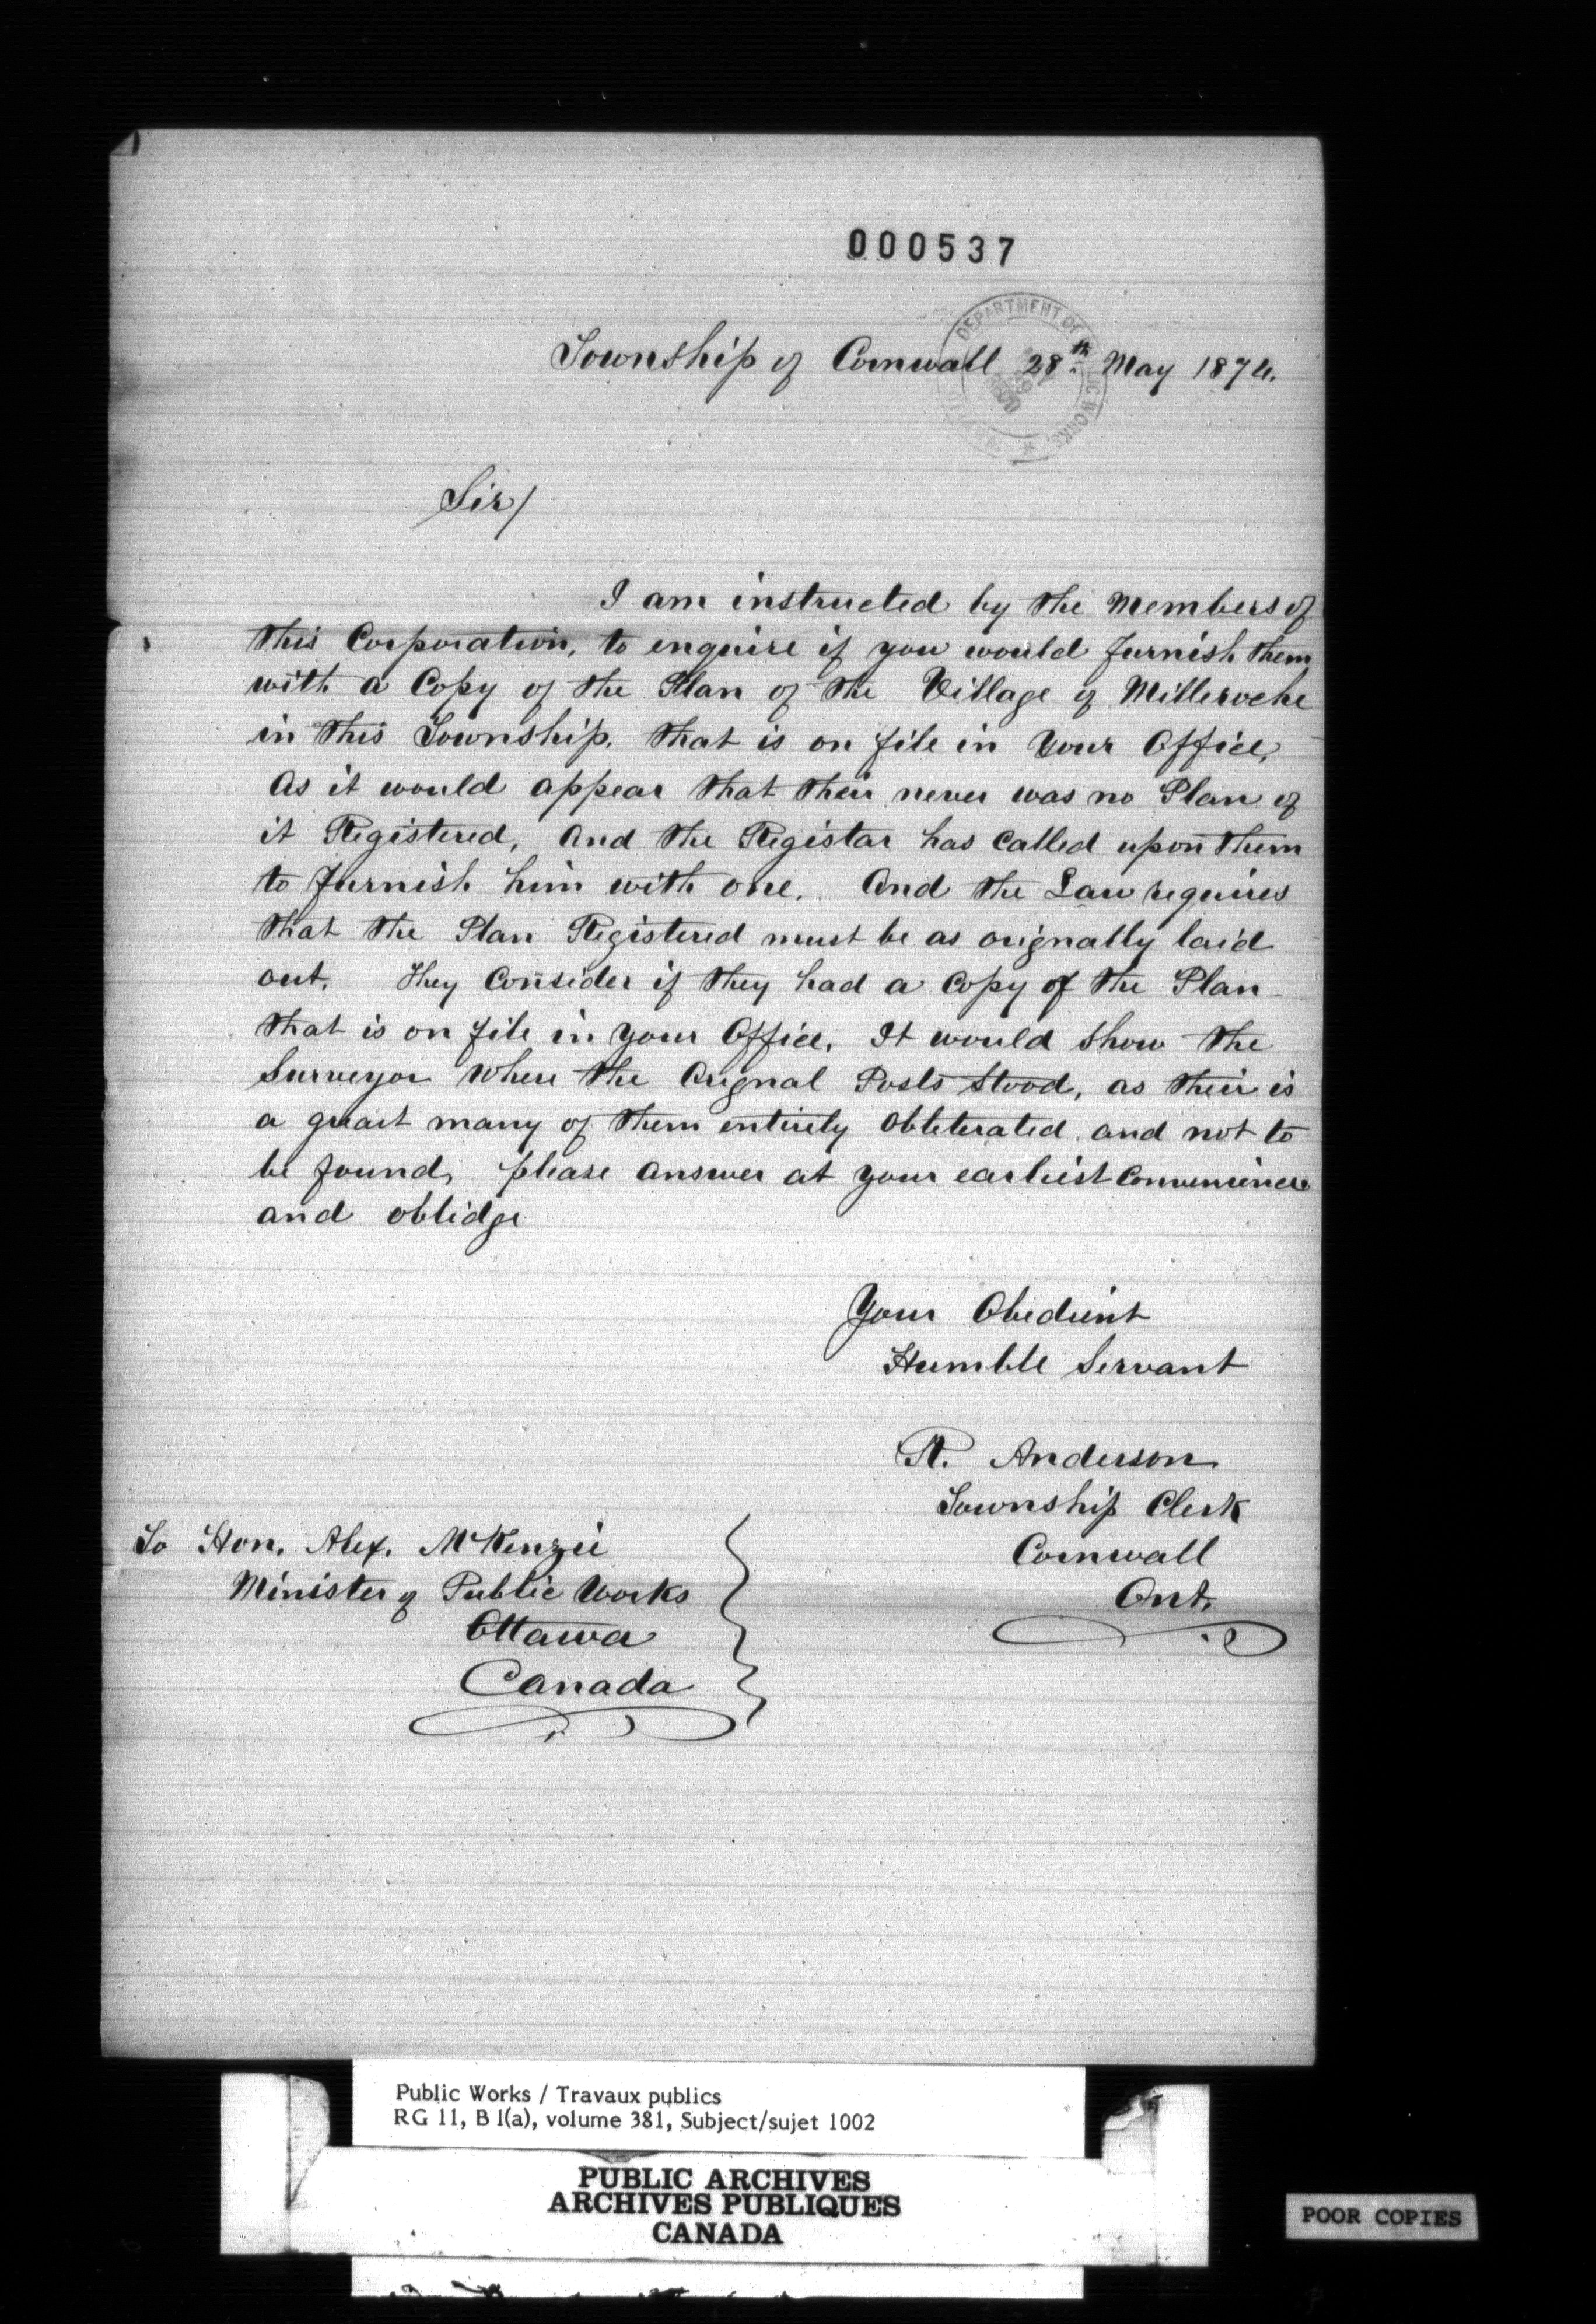 000537
DEPARTMENT OF PUBLIC WORKS.
Township of Cornwall 28th May 1874.
Sir/
I am instructed by the Members of
this Corporation, to enquire if you would furnish them
with a Copy of the Plan of the Village of Milleroche
in this Township, that is on file in Your Office,
As it would appear that their never was no Plan of
it Registered, And the Registar has Called upon them
to furnish him with one. And the Law requires
that the Plan Registered must be as orignally laid
out. They Consider if they had a Copy of the Plan
that is on file in Your Office. It would show the
Surveyor Where the Orignal Posts stood, as their is
a greart many of them entirely obliterated and not to
be found, please answer at your earliest Convenience
and oblidge
Your Obedient
Humble Servant
R. Anderson
Township Clerk
Cornwall
Ont.
To Hon. Alex. McKenzie
Minister of Public Works
Ottawa
Canada
Public Works / Travaux publics
RG 11, B 1(a), volume 381, Subject/sujet 1002
PUBLIC ARCHIVES
ARCHIVES PUBLIQUES
CANADA
POOR COPIES